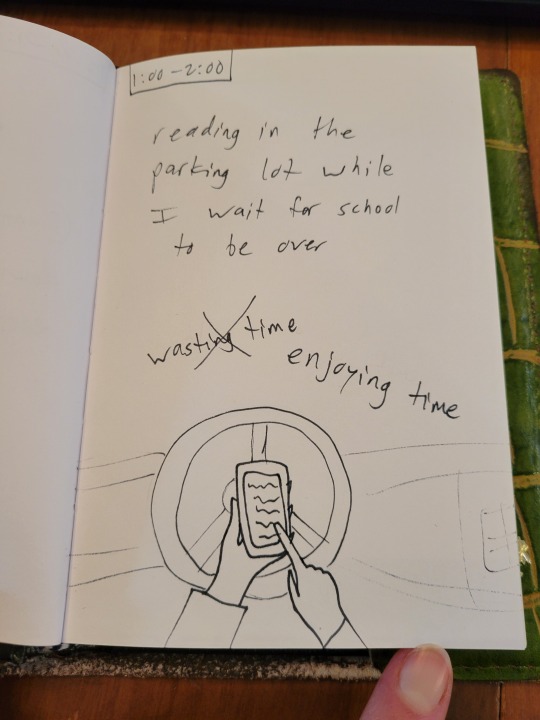 1:00 - 2:00
reading in the
parking lot while
I wait for school
to be over
wasting time
enjoying time